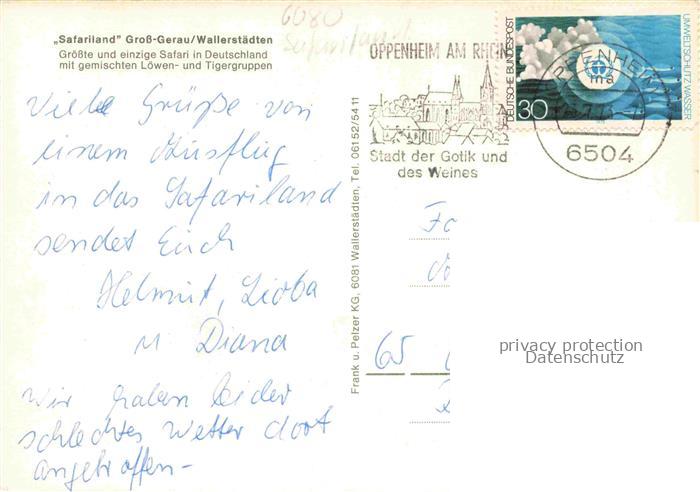 „Safariland" Groß-Gerau/Wallerstädten
Größte und einzige Safari in Deutschland
mit gemischten Löwen- und Tigergruppen
6080
Safariland
Viele Grüße von
einem Ausflug
in das Safariland
sendet Euch
Helmut, Lioba
u Diana
Wir haben leider
schlechtes Wetter dort
angetroffen-
Frank u. Pelzer KG, 6081 Wallerstädten, Tel. 06152/5411
OPPENHEIM AM RHEIN
Stadt der Gotik und
des Weines
DEUTSCHE BUNDESPOST
30
UMWELTSCHUTZ WASSER
OPPENHEIM
ma
6504
Fa
65
privacy protection
Datenschutz